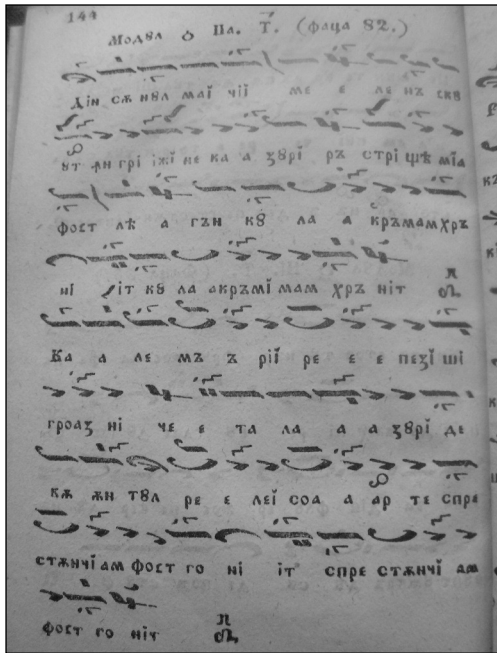 144
Модꙋл ѻ҆ Пл. Т. (фаца 82.)
Дін сѫ нꙋл маї чїї ме е ле нъ скꙋ
ꙋт ꙟн грі іжї не ка а ꙁꙋрї ръ стрі щѣ мїа
фост лѣ а гън кꙋ ла а кръмам хръ
ні іт кꙋ ла акръмї мам хръ ніт
Ка а ле мъ ъ рїї ре е е пеꙁї ші
гроаꙁ ні че е та ла а а ꙁꙋрї де
кѫ ѫн тꙋл ре е леї соа а ар те спре
стѫнчї ам фост го ні іт спре стѫнчї ам
фост го ніт